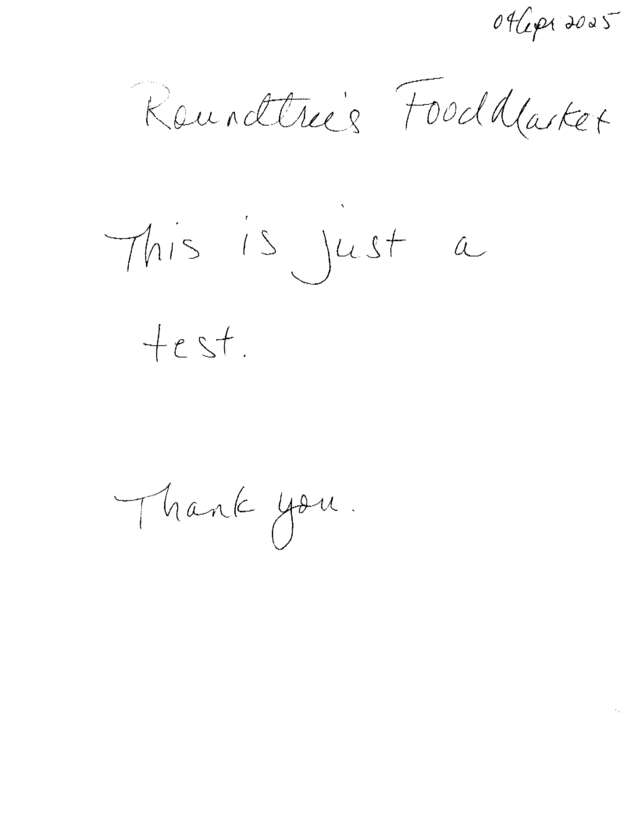 04Apr 2025
Roundtree's Food Market
This is just a
test.
Thank you.